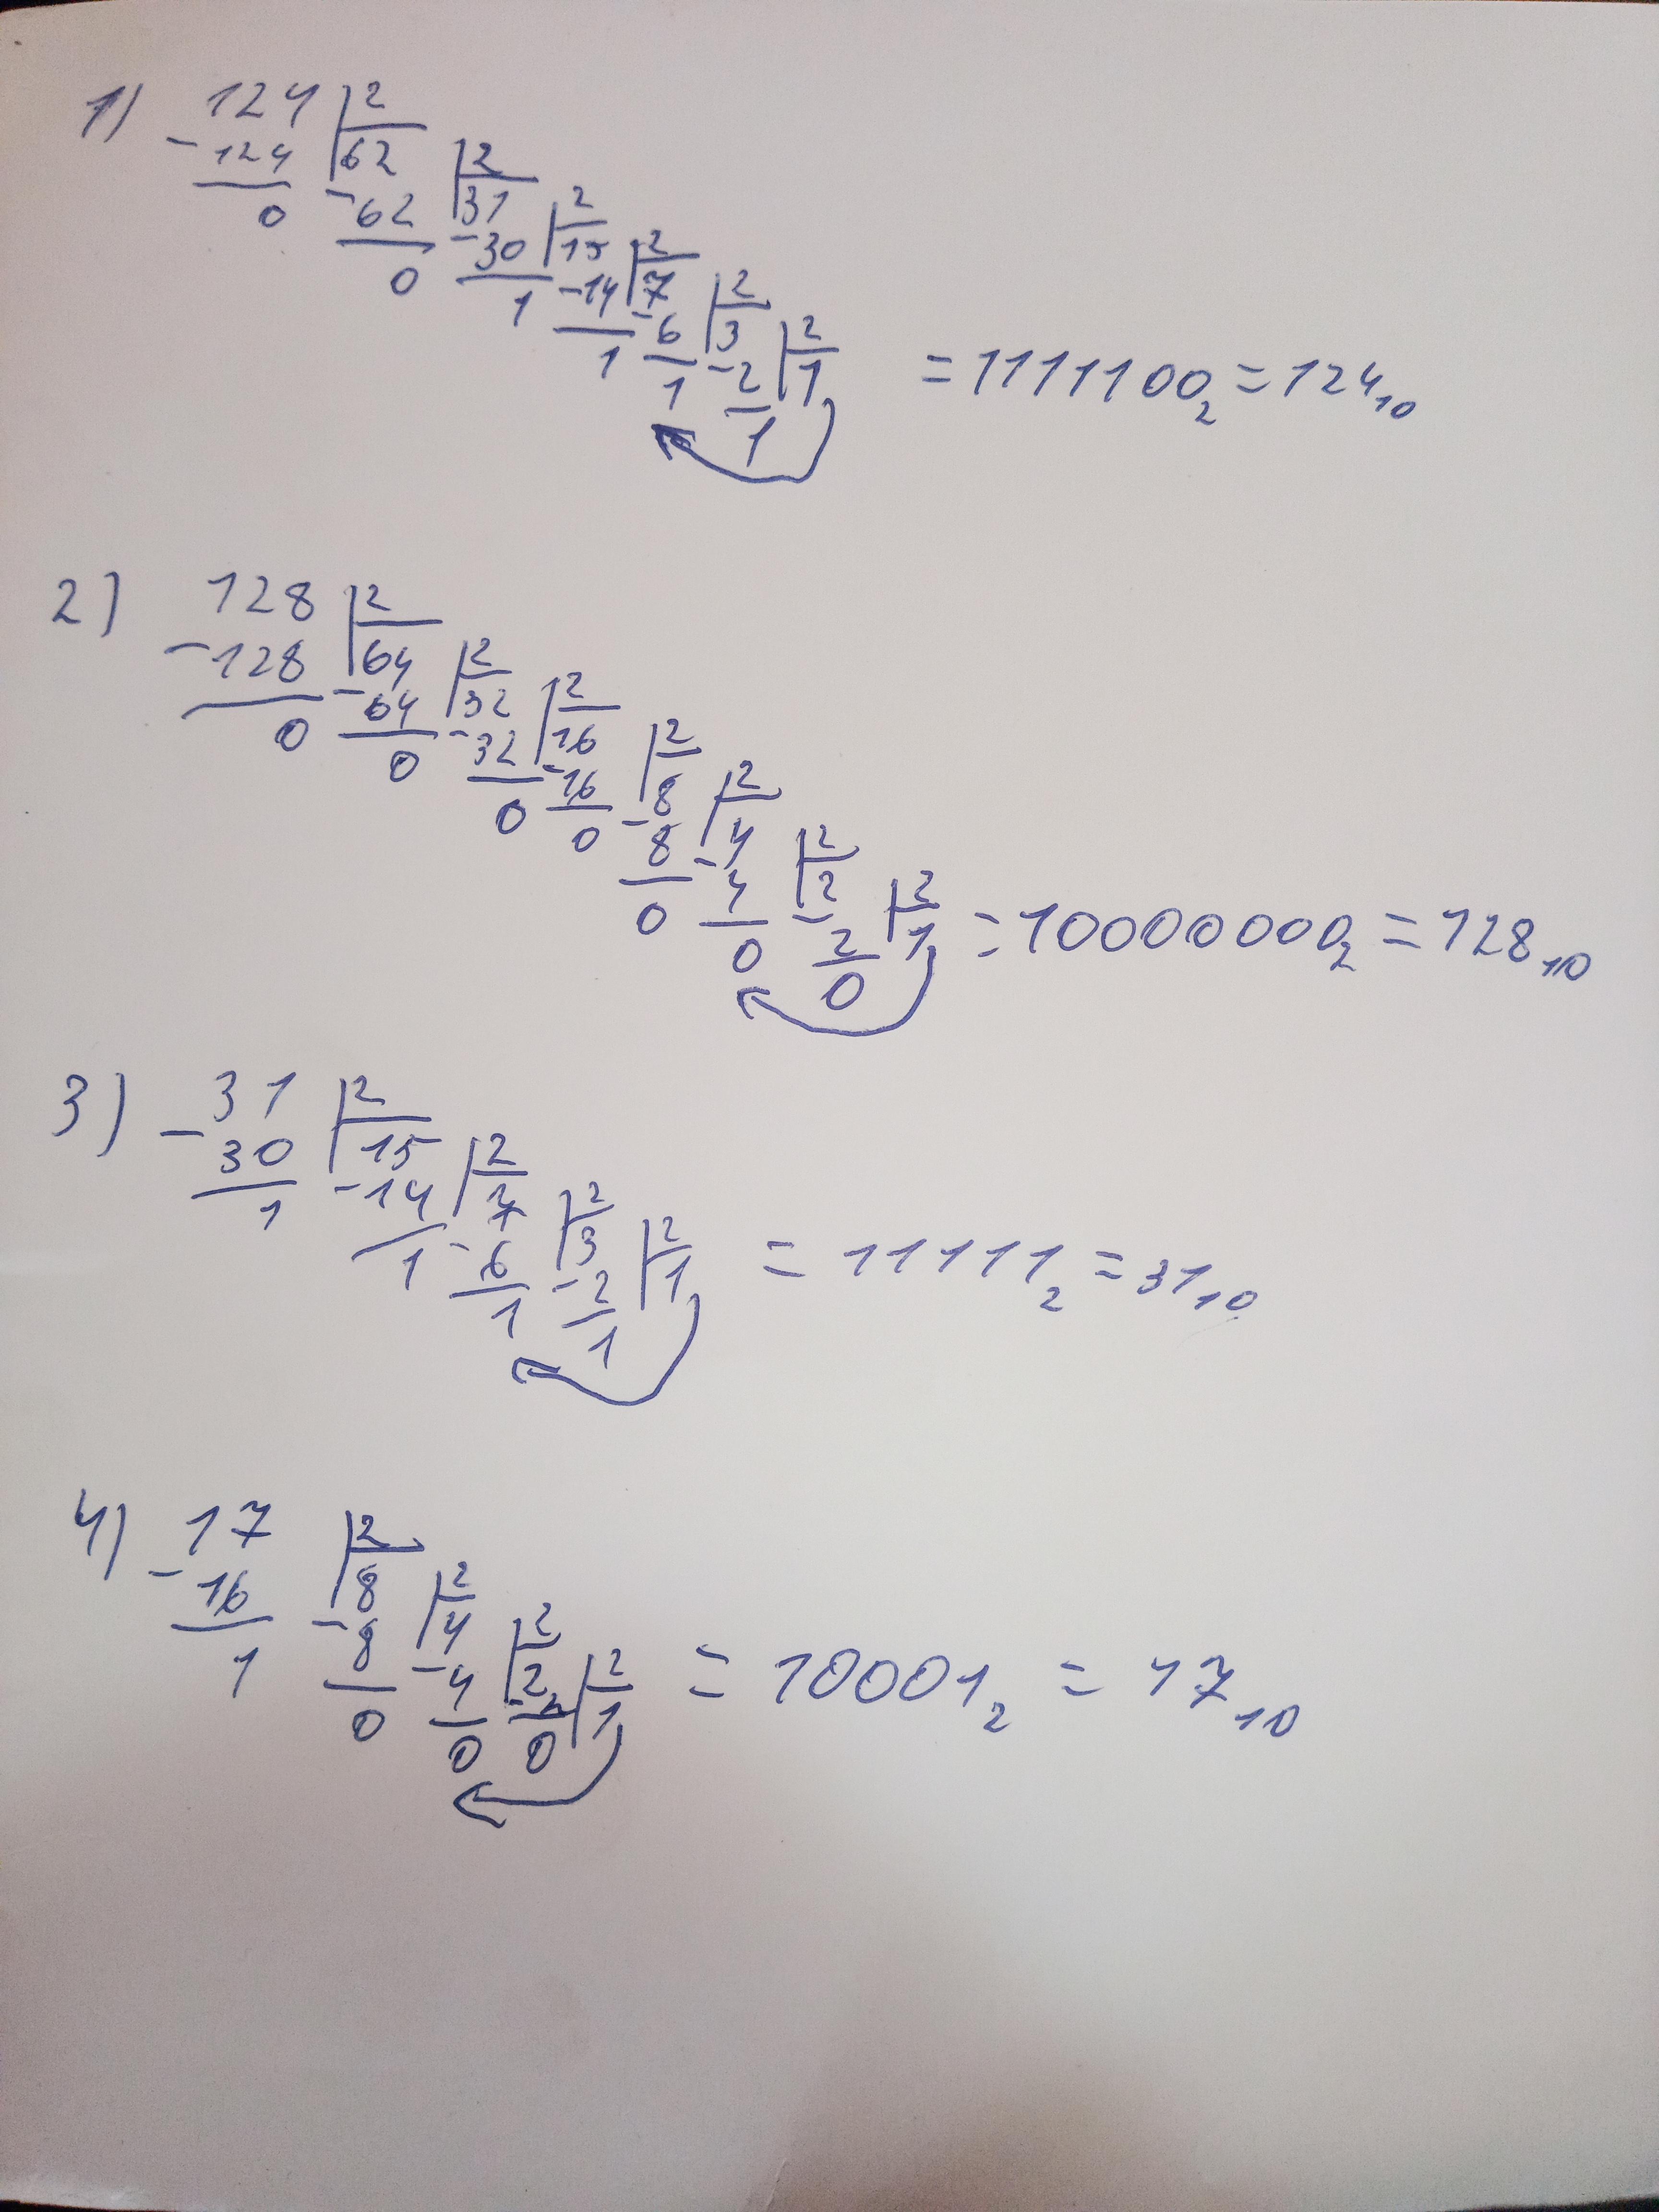 1) 124 |2
-124 |62 |2
0 -62 |31 |2
0 -30 |15 |2
1 -14 |7 |2
1 -6 |3 |2
1 -2 |1 = 1111100₂ = 124₁₀
1
2) 128 |2
-128 |64 |2
0 -64 |32 |2
0 -32 |16 |2
0 -16 |8 |2
0 -8 |4 |2
0 -4 |2 |2
0 -2 |1 = 10000000₂ = 128₁₀
0
3) -31 |2
30 |15 |2
1 -14 |7 |2
1 -6 |3 |2
1 -2 |1 = 11111₂ = 31₁₀
1
4) -17 |2
16 |8 |2
1 -8 |4 |2
0 -4 |2 |2
0 -2 |1 = 10001₂ = 17₁₀
0